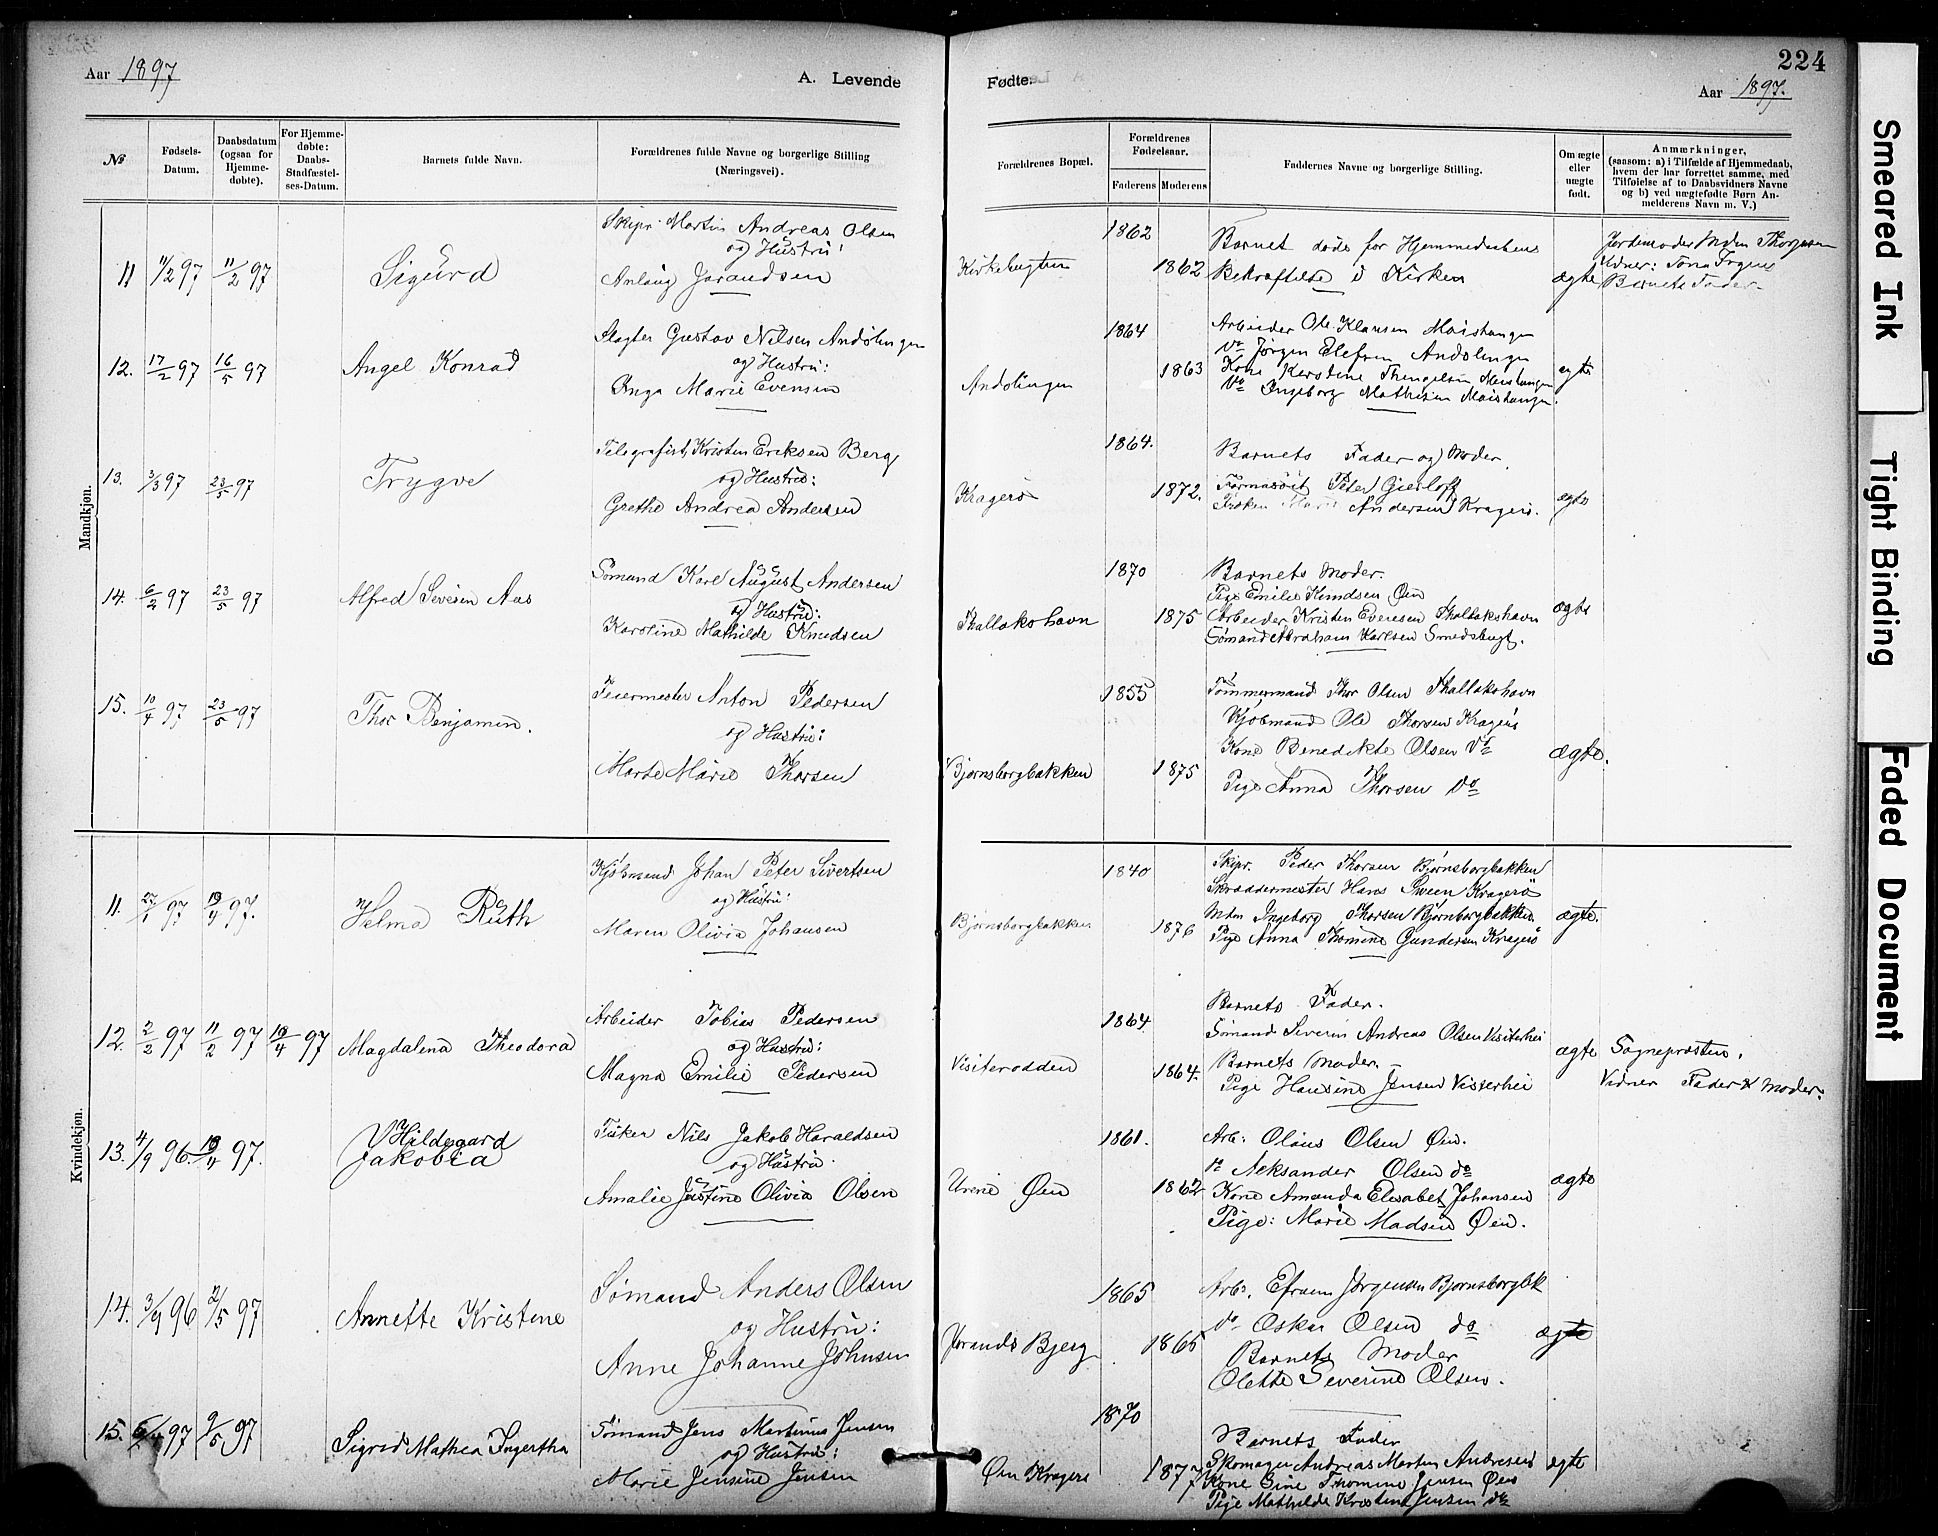 224
Aar 1897
A. Levende
Fødte.
Aar 1897.
№
Fødsels-Datum.
Daabsdatum (ogsaa for Hjemmedøbte).
For Hjemmedøbte: Daabs-Stadfæstelses-Datum.
Barnets fulde Navn.
Forældrenes fulde Navne og borgerlige Stilling (Næringsvei).
Forældrenes Bopæl.
Forældrenes Fødselsaar.
Faderens
Moderens
Faddernes Navne og borgerlige Stilling.
Om ægte eller uægte født.
Anmærkninger, (saasom: a) i Tilfælde af Hjemmedaab, hvem der har forrettet samme, med Tilføielse af to Daabsvidners Navne og b) ved uægtefødte Børn Anmelderens Navn m. V.)
Mandkjøn.
11 11/2 97 11/2 97 Sigurd
Skipr. Martin Andreas Olsen
og Hustru:
Anlaug Jorandsen
Kirkebugten 1862 1862
Barnet døde før Hjemmedaabens
Bekræftelse i Kirken
ægte
Jordemoder Mdm Thorgesen
Barnets Fader.
12. 17/2 97 16/5 97 Angel Konrad
Slagter Gustav Nilsen Andølingen
og Hustru:
Inga Marie Evensen
Andølingen 1864 1863
Arbeider Ole Klausen
Do Jørgen Elefsen Andølingen
Kone Kerstine
Do Ingeborg Mathisen
ægte
13. 3/3 97 23/5 97 Trygve
Telegrafist Kristen Eriksen Berg
og Hustru:
Grethe Andrea Andersen
Kragerø 1864. 1872.
Barnets Fader og Moder.
Farmasøit Peter Gierløff
Frøken Marie Andersen Kragerø.
ægte
14. 6/2 97 23/5 97 Alfred Seversen Aas
Sømand Karl August Andersen
og Hustru:
Karoline Mathilde Knudsen
Thallakshavn 1870 1875
Barnets Moder.
Pige Emilie Knudsen Øen
Arbeider Kristen Evensen Thallakshavn
Sømand Abraham Karlsen Smedsbugt.
ægte
15. 10/4 97 23/5 97 Thor Benjamin.
Feiermester Anton Pedersen
og Hustru:
Marte Marie Thorsen
Bjørnsborgbakken 1855 1875
Tømmermand Thor Olsen Thallakshavn
Kjøbmand Ole Thorsen Kragerø
Kone Benedikte Olsen Do
Pige Anna Thorsen Do
ægte.
Kvindekjøn.
11. 27/1 97 19/4 97. Helma Ruth
Kjøbmand Johan Peter Sivertsen
og Hustru:
Maren Olivia Johansen
Bjørnsborgbakken 1840 1876
Skipr. Peder Thorsen Bjørnsborgbakken
Skræddermester Hans Sween Kragerø
Mdm Ingeborg Thorsen Bjørnborgbakken
Pige Anna Thomine Gundersen Kragerø
ægte.
12. 2/2 97 11/2 97 19/4 97 Magdalena Theodora
Arbeider Tobias Pedersen
og Hustru:
Magna Emilie Pedersen
Visiterodden 1864 1864.
Barnets Fader.
Sømand Severin Andreas Olsen Visterhei
Barnets Moder.
Pige Hansine Jensen Visterhei
ægte
Sognepresten.
Vidner Fader & Moder.
13. 4/9 96. 19/4 97. Hildegaard
Jakobia
Fisker Nils Jakob Haraldsen
og Hustru
Amalie Justine Olivia Olsen
Øen 1861. 1862
Arb: Olaus Olsen Øen.
Do Aeksander Olsen do
Kone Amanda Elisabet Johansen
Pige: Marie Madsen Øen.
ægte
14. 3/9 96 2/5 97 Annette Kristene
Sømand Anders Olsen
og Hustru:
Anne Johanne Johnsen
Jorands Bjerg 1865 1865
Arb. Efraim Jørgensen Bjørnsborgbk
do Oskar Olsen do
Barnets Moder
Olette Severine Olsen.
ægte
15. 97 9/5 97 Sigrid Mathea Ingertha
Sømand Jens Martinus Jensen
og Hustru:
Marie Jensine Jensen
Øen Kragerø 1870 1877
Barnets Fader
Skomager Andreas Martin Andresen
Kone Sine Thomine Jensen Øen
Pige Mathilde Kristine Jensen do
ægte
Smeared Ink
Tight Binding
Faded Document